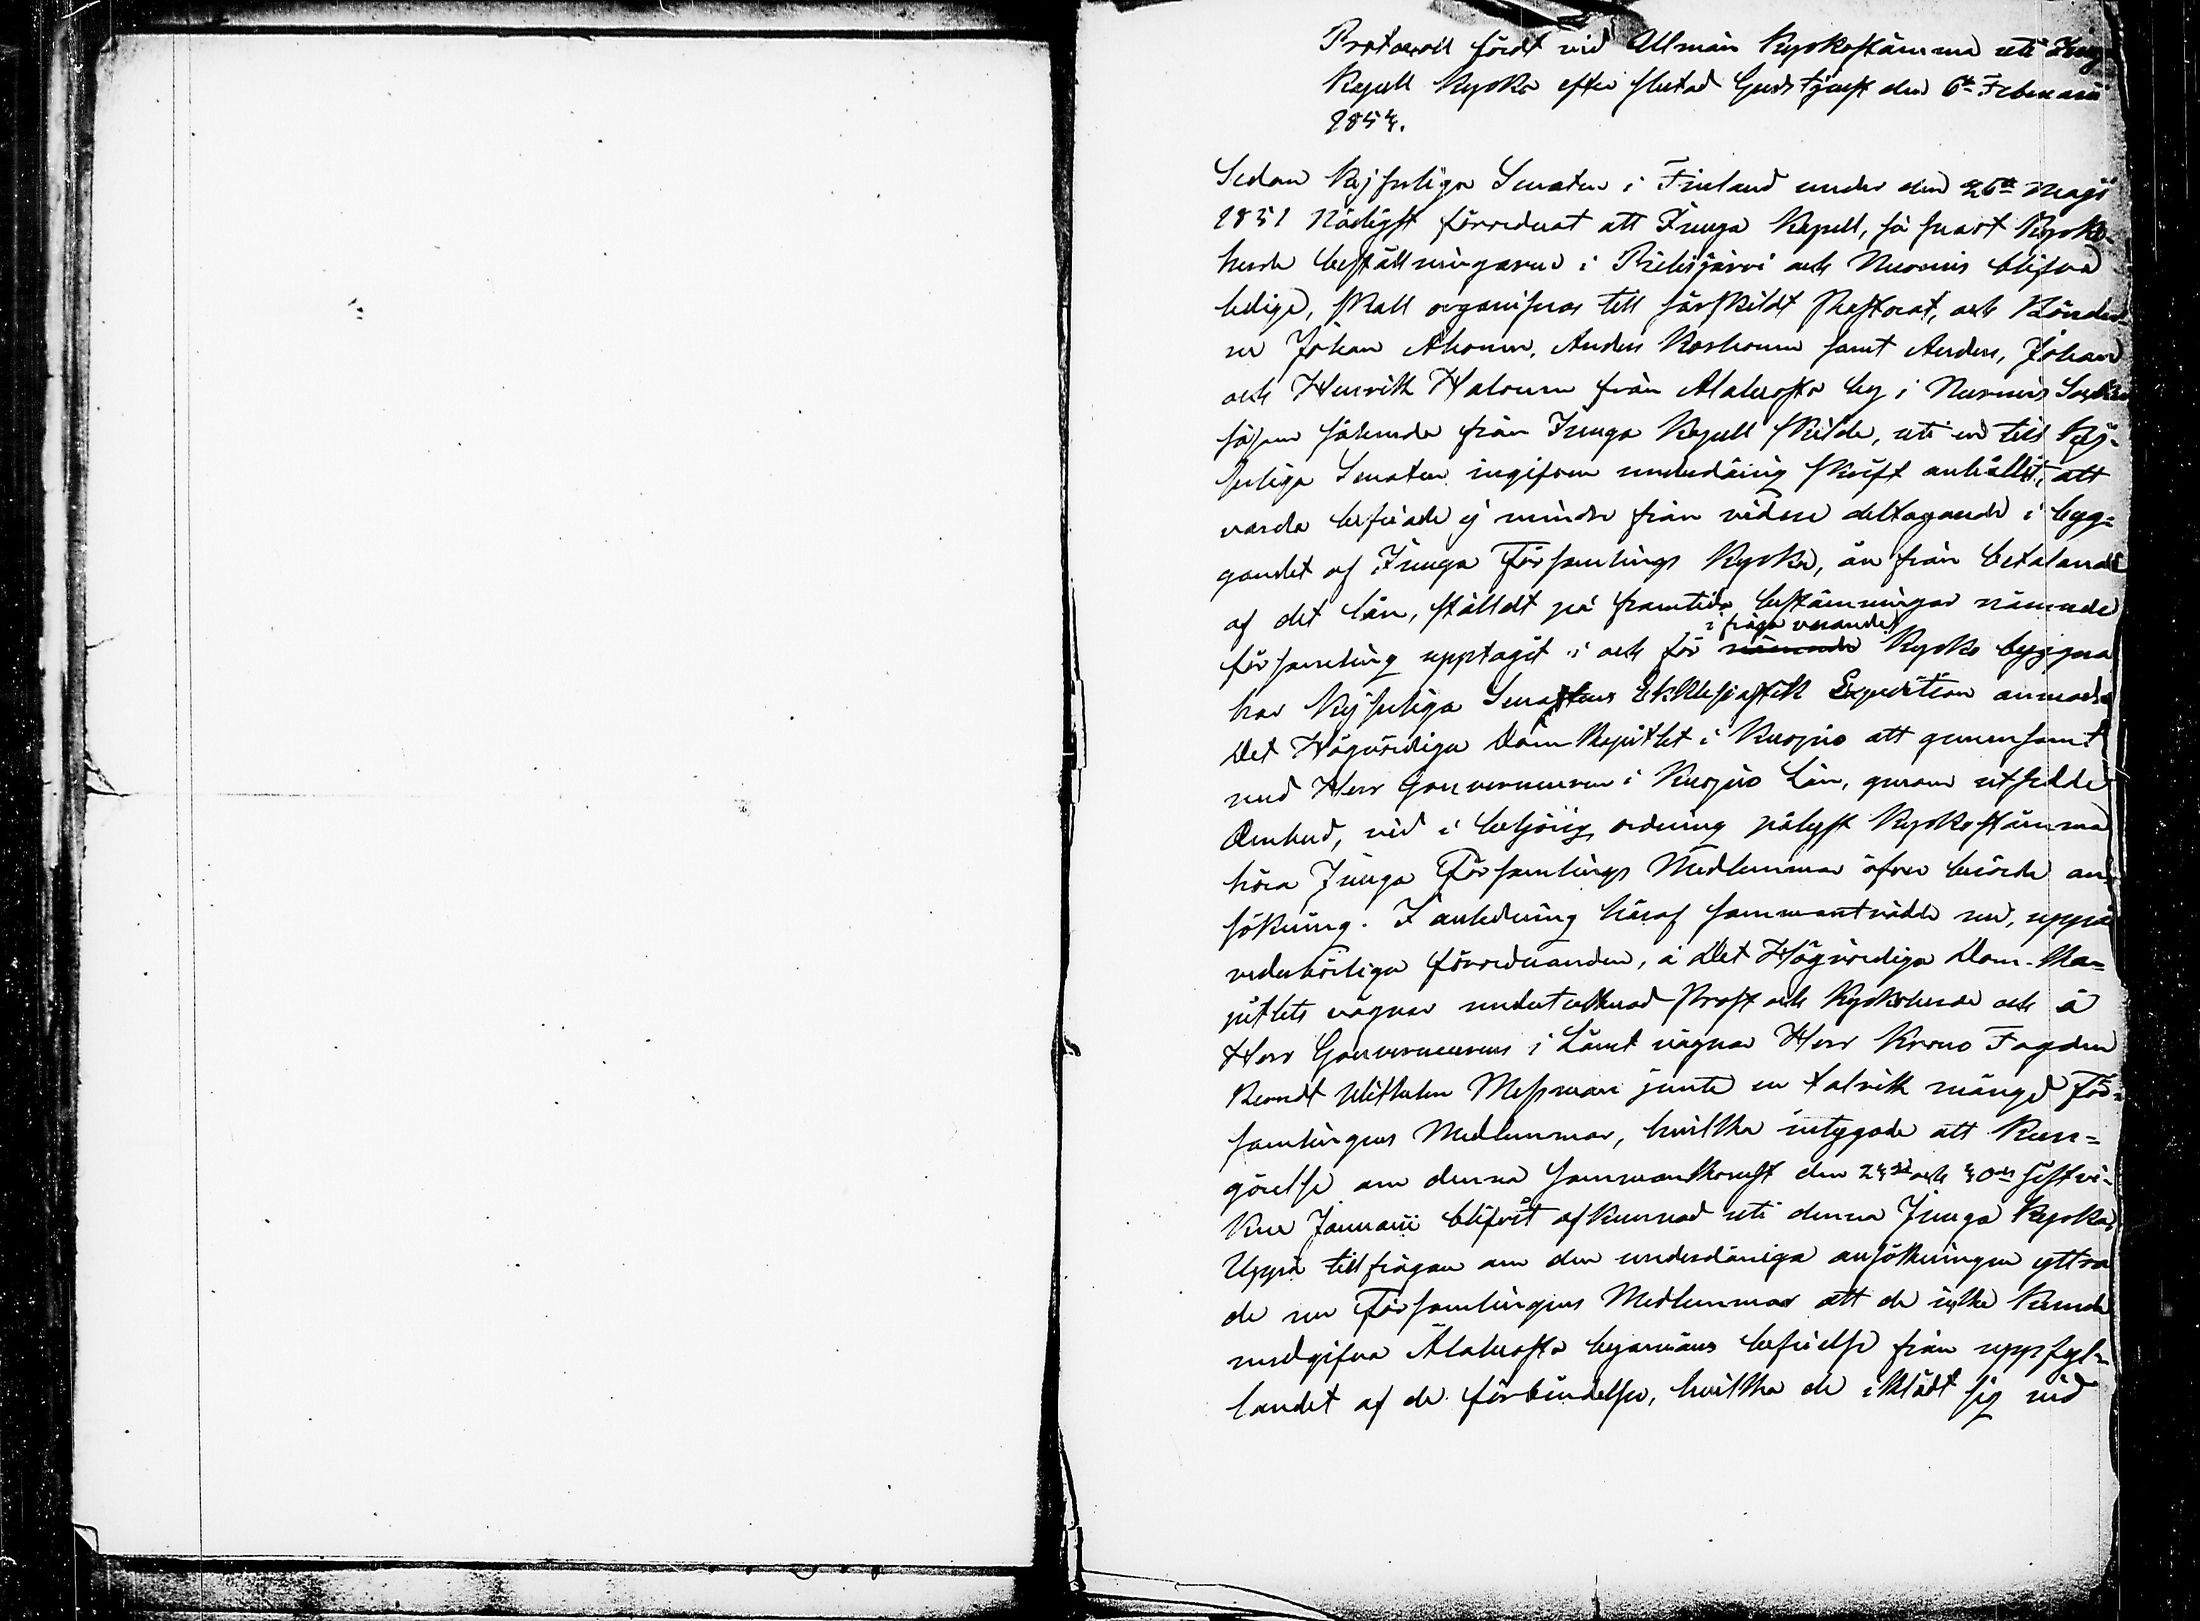 Protocoll fördt vid Allmän Kyrkostämma uti Juuga
Kapell Kyrka efter slutad Gudstjenst den 6te Februarii
1853.
Sedan Kejserliga Senaten i Finland under den 26te Maji
1851 Nådigst förordnat att Juuga Kapell, så snart Kyrko-
herde beställningarne i Pielisjärvi och Nurmis blifva
ledige, skall organiseras till särskildt Pastorat, och Bönder-
ne Johan Ahonen, Anders Korhonen samt Anders, Johan
och Henrik Halonen från Alaluosta by i Nurmis Socken
såsom sålunda från Juuga Kapell skilde, uti en till Kej-
serliga Senaten ingifven underdånig skrift anhållit, att
varda befriade ej mindre från vidare deltagande i byg-
gandet af Juuga Församlings Kyrka, än från betalande
af det lån, ställdt på framtida bestämningar nämnde
församling upptagit i och för nämnde i fråga varande Kyrko byggna
har Kejserliga Senatens Ekklesiastik Expedition anmodat
Det Högvördiga Dom-Kapitlet i Kuopio att gemensamt
med Herr Gouverneuren i Kuopio Län, genom utsedde
Ombud, vid i behörig ordning pålyst Kyrkostämma
höra Juuga Församlings Medlemmar öfver berörde an-
sökning. I anledning häraf sammanträdde nu, uppå
vederbörliga förordnanden, å Det Högvördiga Dom-Ka-
pitlets vägnar undertecknad Prost och Kyrkoherde och å
Herr Gouverneurens i Länet vägnar Herr Krono Fogden
Berndt Wilhelm Messman jemte en talrik mängd För-
samlingens Medlemmar, hvilka intygade att Kun-
görelse om denna sammankomst den 23de och 30de sistvi-
kne Januarii blifvit afkunnad uti denna Juuga Kyrka.
Uppå tillfrågan om den underdåniga ansökningen yttra
de nu Församlingens Medlemmar att de icke kunde
medgifva Alaluosta byamäns befrielse från uppfyl-
landet af de förbindelser, hvilka de iklädt sig vid